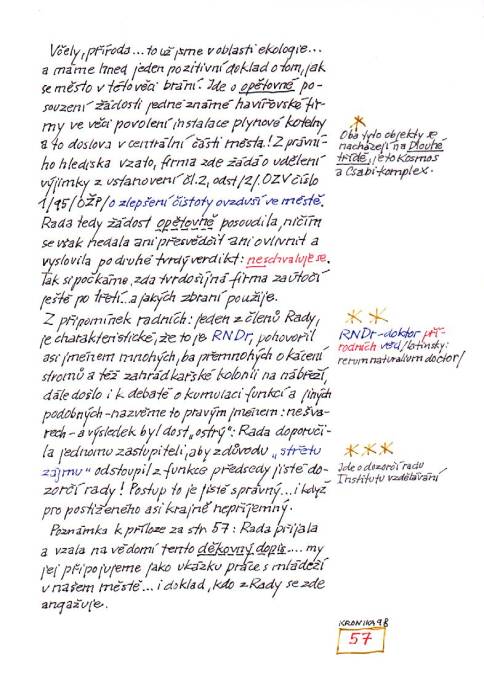 Včely, příroda... to už jsme v oblasti ekologie...
a máme hned jeden pozitivní doklad o tom, jak
se město v této věci brání. Jde o opětovné po-
souzení žádosti jedné známé havířovské fir-
my ve věci povolení instalace plynové kotelny
a to doslova v centrální části města! Z právní-
ho hlediska vzato, firma zde žádá o udělení
výjimky z ustanovení čl.2, odst/2/, OZV číslo
1/95/OŽP/o zlepšení čistoty ovzduší ve městě.
Rada tedy žádost opětovně posoudila, ničím
se však nedala ani přesvědčit ani ovlivnit a
vyslovila po druhé tvrdý verdikt: neschvaluje se.
Tak si počkáme, zda tvrdošíjná firma zaútočí
ještě po třetí...a jakých zbraní použije.
Z připomínek radních: jeden z členů Rady,
je charakteristické, že to je RNDr, pohovořil
asi jménem mnohých, ba přemnohých o kácení
stromů a též zahrádkářské kolonii na nábřeží,
dále došlo i k debatě o kumulaci funkcí a jiných
podobných-nazvěme to pravým jménem: nešva-
rech-a výsledek byl dost „ostrý": Rada doporuči-
la jednomu zastupiteli, aby z důvodu „střetu
zájmu" odstoupil z funkce předsedy jisté do-
zorčí rady! Postup to je jistě správný...i když
pro postiženého asi krajně nepříjemný.
Poznámka k příloze za str. 57: Rada přijala
a vzala na vědomí tento děkovný dopis.... my
jej připojujeme jako ukázku práce s mládeží
v našem městě...i doklad, kdo z Rady se zde
angažuje.
*
Oba tyto objekty se
nacházejí na Dlouhé
třídě, je to Kosmos
a Csabi-komplex.
* *
RNDr-doktor pří-
rodních věd/latinsky:
rerum naturalium doctor/
* * *
Jde o dozorčí radu
Institutu vzdělávání
KRONIKA 98
57